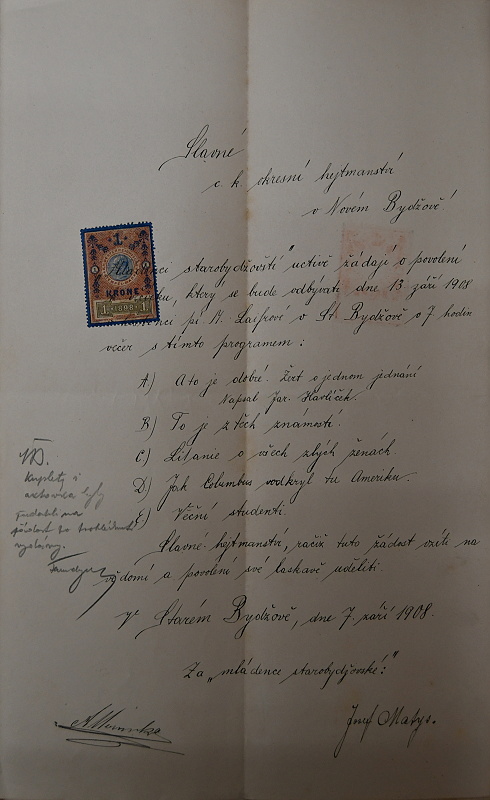 Slavné
c. k. okresní hejtmanství
v Novém Bydžově!
1
KRONE
1 1898 1
starobydžovští" uctivě žádají o povolení
který se bude odbývati dne 13 září 1908
pí. M. v St. Bydžově o 7 hodin
večer s tímto programem:
A) A to je dobré. Žert o jednom jednání
Napsal Jar. Havlíček.
B) To je z těch známostí.
C) Litanie o všech zlých ženách.
D) Jak Columbus vodkryl tu Ameriku.
E) Věční studenti.
Kuplety i
Slavné hejtmanství, račiž tuto žádost vzíti na
vědomí a povolení své laskavě uděliti.
V Starém Bydžově, dne 7. září 1908.
Za „mládence starobydžovské:"
Josef Matys.